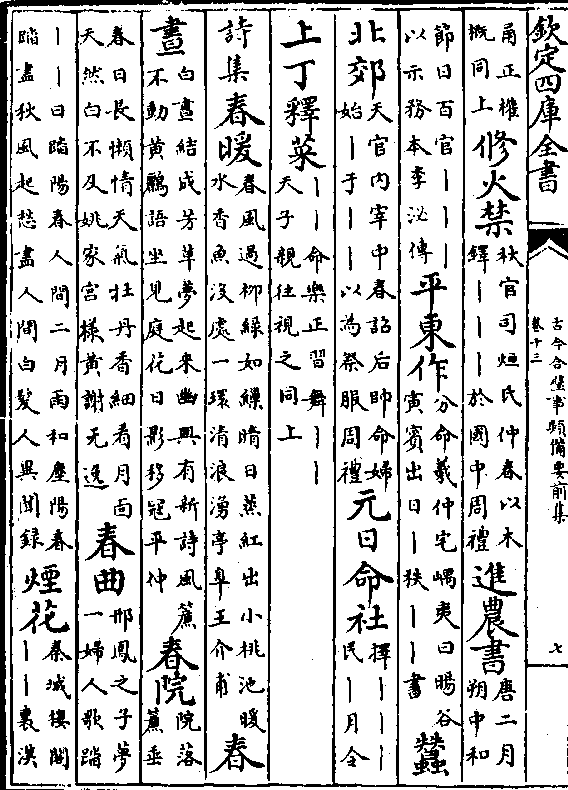 欽定四庫全書
古今合璧事類備要前集
卷十三
七
甬正權
概同上
修火禁
秋官司烜氏仲春以木
鐸丨丨丨於國中周禮
進農書
唐二月
朔中和
節日百官丨丨丨
以示務本李泌傳
平東作
分命羲仲宅嵎夷曰暘谷
寅賓出日丨秩丨丨書
蠶
北郊
天官内宰中春詔后帥命婦
始丨于丨丨以為祭服周禮
元日命社
擇丨丨丨
民丨月令
上丁釋菜
丨丨命樂正習舞丨丨
天子親往視之同上
詩集春暖
春風過柳緑如繰晴日蒸紅出小桃池暖
水香魚没處一環清浪湧亭臯王介甫
春
晝
白晝結成芳草夢起來幽興有新詩風簾
不動黃鸝語坐見庭花日影移冦平仲
春院
丨院落
丨簾垂
春日長懶情天氣牡丹香細看月面
天然白不及姚家宮様黃謝无逸
春曲
邢鳳之子夢
一婦人歌踏
丨丨曰踏陽春人間二月雨和塵陽春
踏盡秋風起愁盡人間白髮人異聞録
煙花
秦城樓閣
丨丨裏漢